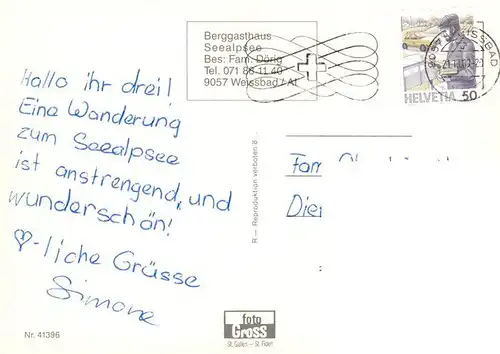 Berggasthaus
Seealpsee
Bes: Fam. Dörig
Tel. 071 88 11 40
9057 Weissbad / AI
HELVETIA 50
Hallo ihr drei!
Eine Wanderung
zum Seealpsee
ist anstrengend, und
wunderschön!
♡-liche Grüsse
Simone
R — Reproduktion verboten
Fam
Nr. 41396
foto
Gross
St. Gallen - St. Fiden